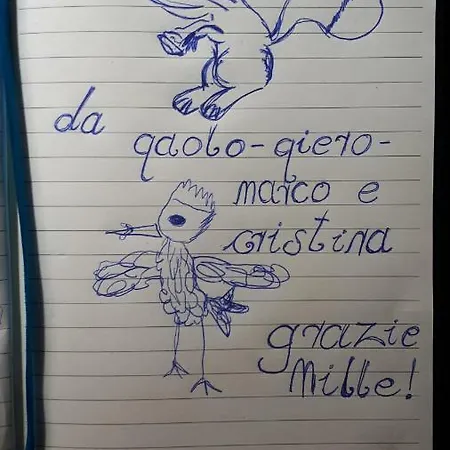 da
paolo-piero-
marco e
cristina
grazie
Mille!